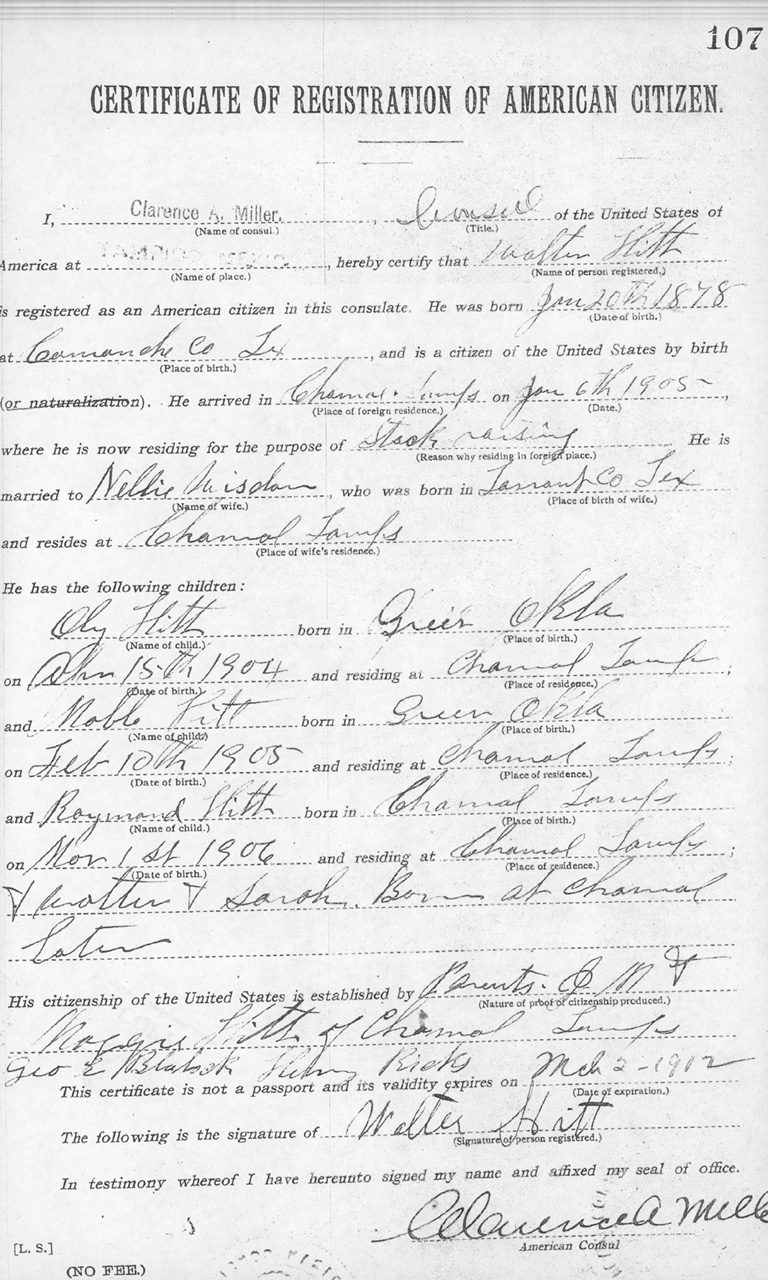 107
CERTIFICATE OF REGISTRATION OF AMERICAN CITIZEN.
I, Clarence A. Miller. , Consul of the United States of
(Name of consul.) (Title.)
America at , hereby certify that Walter Hitt
(Name of place.) (Name of person registered.)
is registered as an American citizen in this consulate. He was born Jan 20th 1878
(Date of birth.)
at Comanche Co Tx , and is a citizen of the United States by birth
(Place of birth.)
(or naturalization). He arrived in Chamal Tamps on Jan 6th 1905 ,
(Place of foreign residence.) (Date.)
where he is now residing for the purpose of stock raising He is
(Reason why residing in foreign place.)
married to Nellie Wisdom , who was born in Tarrant Co Tex
(Name of wife.) (Place of birth of wife.)
and resides at Chamal Tamps
(Place of wife's residence.)
He has the following children:
Hitt born in Greer Okla
(Name of child.) (Place of birth.)
on 15th 1904 and residing at Chamal Tamps ;
(Date of birth.) (Place of residence.)
and Noble Hitt born in Greer Okla
(Name of child.) (Place of birth.)
on Feb 10th 1905 and residing at Chamal Tamps ;
(Date of birth.) (Place of residence.)
and Raymond Hitt born in Chamal Tamps
(Name of child.) (Place of birth.)
on Nov 1st 1906 and residing at Chamal Tamps ;
(Date of birth.) (Place of residence.)
& Walter & Sarah. Born at Chamal
later
His citizenship of the United States is established by Parents. M &
(Nature of proof of citizenship produced.)
Maggie Hitt of Chamal Tamps
Geo E Blalock Henry Ricks
This certificate is not a passport and its validity expires on Mch 2-1912
(Date of expiration.)
The following is the signature of Walter Hitt
(Signature of person registered.)
In testimony whereof I have hereunto signed my name and affixed my seal of office.
Clarence A Mille
American Consul
[L. S.]
(NO FEE.)